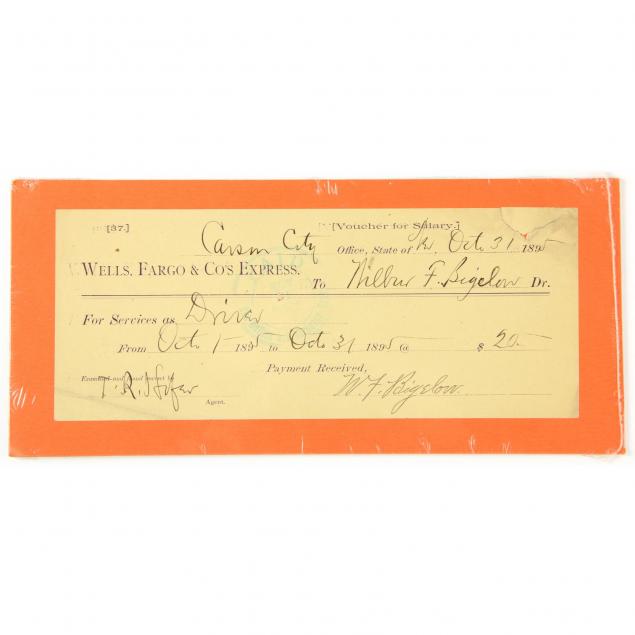 [37.] [Voucher for Salary.]
Carson City Office, State of Nv. Oct 31 1895
WELLS, FARGO & CO'S EXPRESS.
To Wilbur F. Bigelow Dr.
For Services as Driver
From Oct 1 1895 to Oct 31 1895 @ $ 20
Payment Received,
Examined and found correct by
T. R. Hofer W. F. Bigelow
Agent.